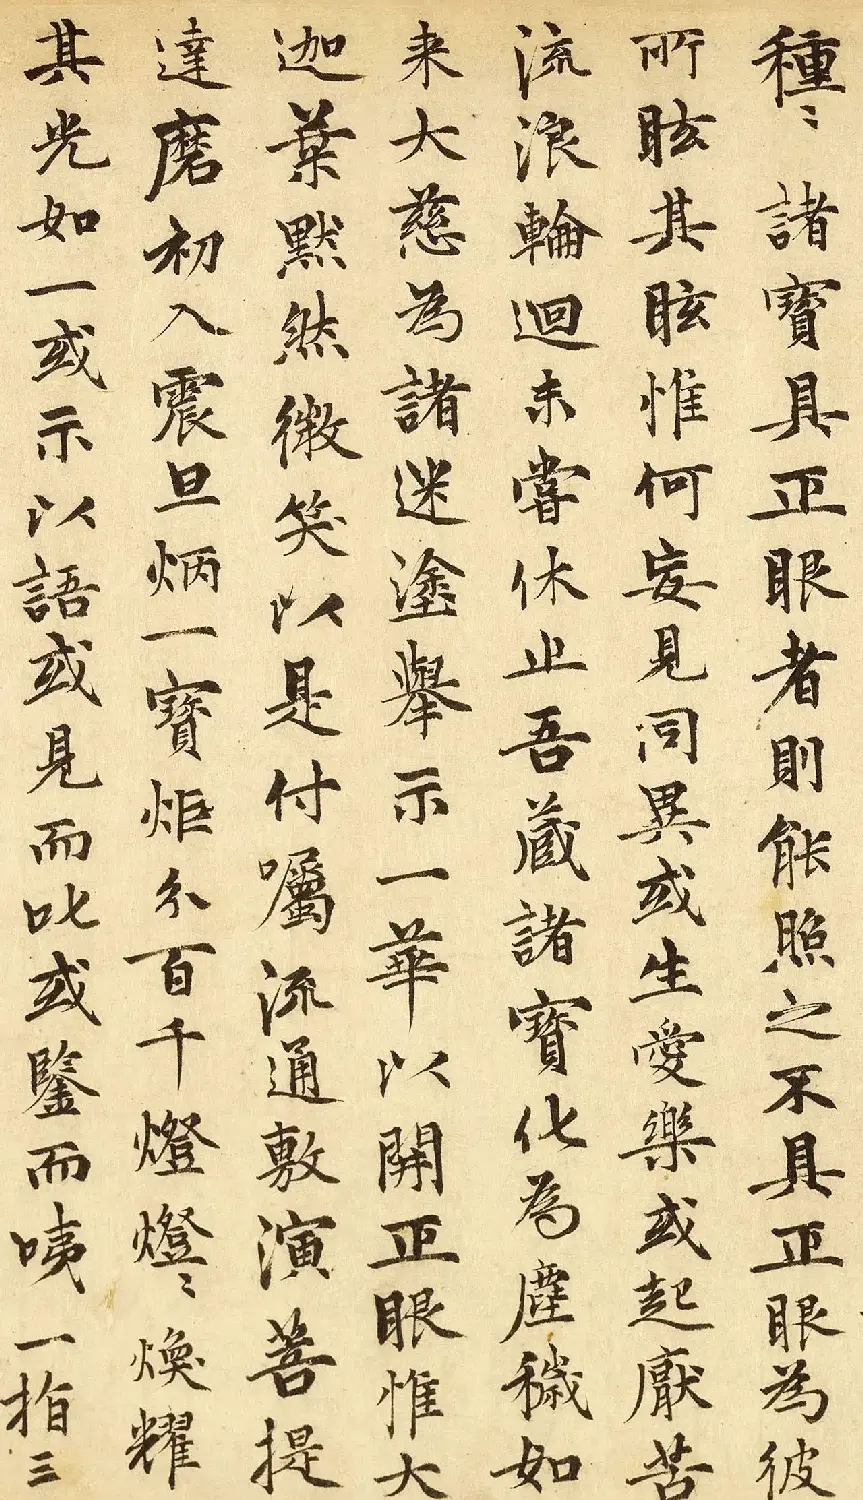 種〻諸寶具正眼者則能照之不具正眼為彼
所眩其眩惟何妄見同異或生愛樂或起厭苦
流浪輪迴未嘗休止吾藏諸寶化為塵穢如
来大慈為諸迷塗舉示一華以開正眼惟大
迦葉默然微笑以是付囑流通敷演菩提
達磨初入震旦炳一寶炬分百千燈燈〻煥耀
其光如一或示以語或見而叱或鑒而咦一指三